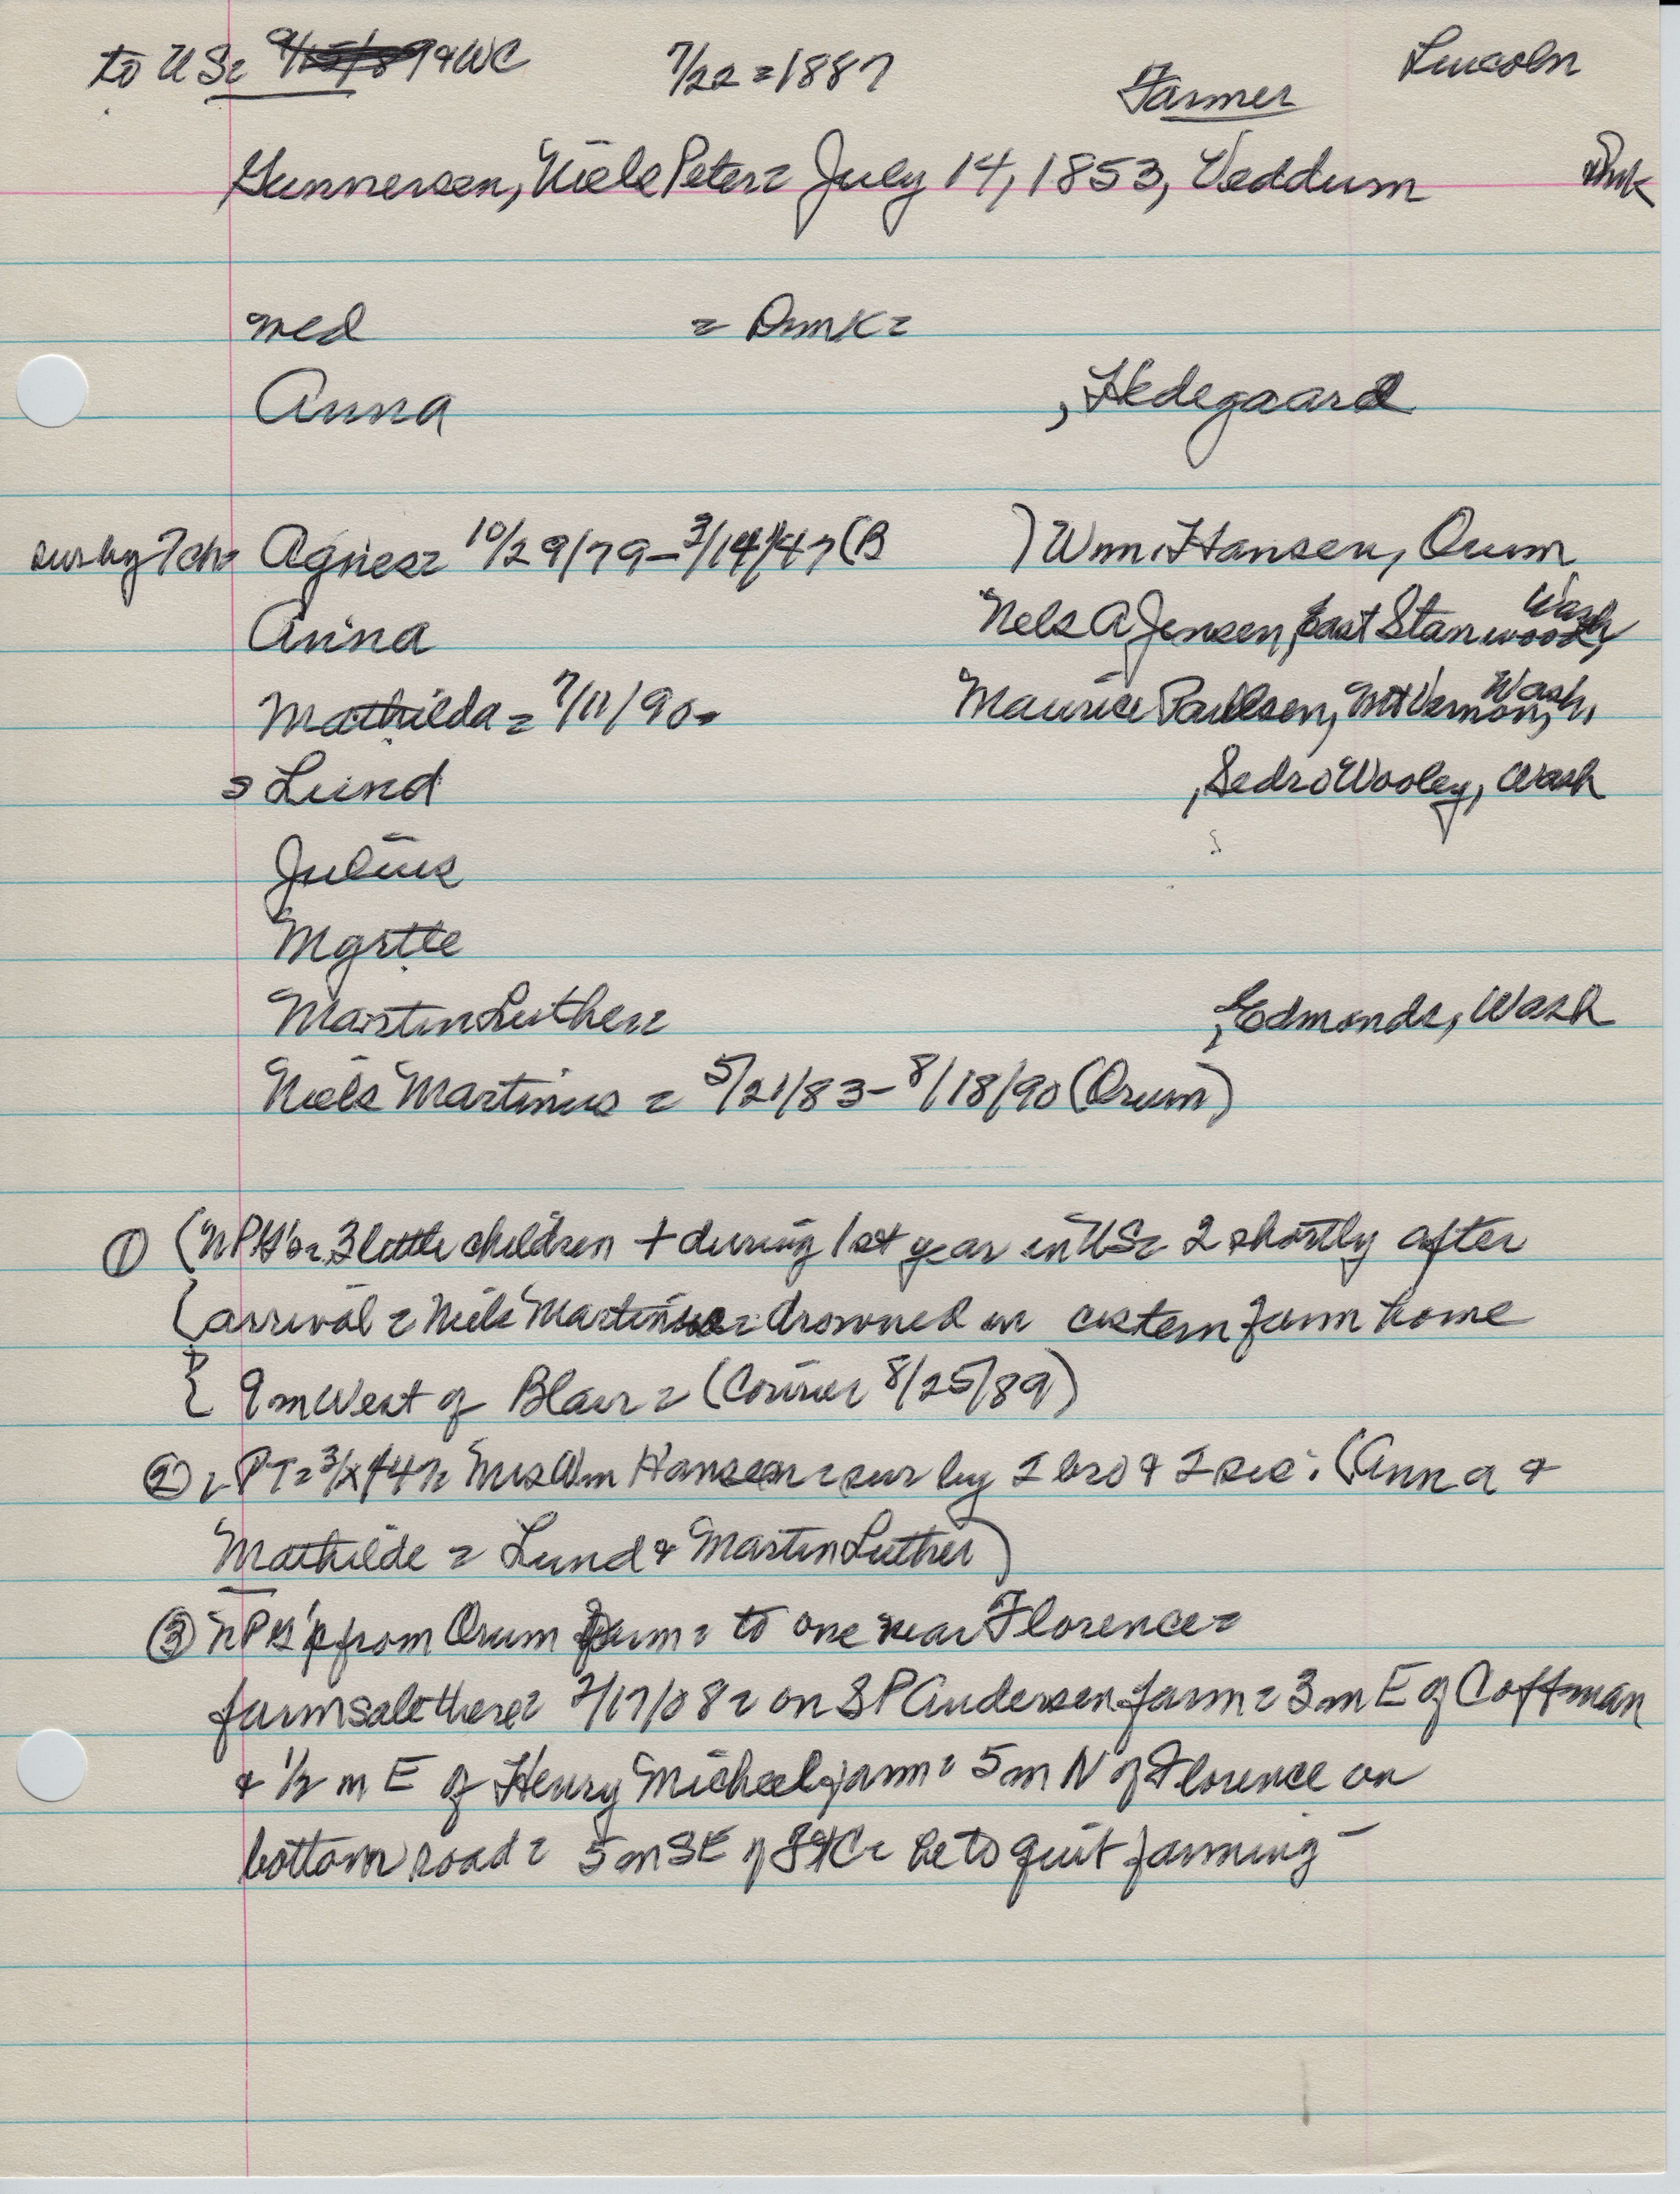 to US= & WC 7/22=1887 Farmer Lincoln
Gunnersen, Niels Peter= July 14, 1853, Veddum Dmk
med = Dmk=
Anna , Hedegaard
sur by 7 ch= Agnes= 10/29/79-3/14/47 (B ) Wm. Hansen, Orum
Anna Nels A Jensen, East Stanwood, Wash
Mathilda = 7/11/90= Maurice Paulsen, Mt Vernon, Wash,
= Lund , Sedro Wooley, Wash
Julius
Myrtle
Martin Luther= , Edmonds, Wash
Niels Martinus = 5/21/83-8/18/90 (Orum)
① (NPG's= 3 little children + during 1st year in US= 2 shortly after
(arrival = Niels Martinus= drowned in cistern farm home
{ 9 m West of Blair = (Courier 8/25/89)
② PT= Mrs Wm Hansen = sur by 2 bro & 2 sis: (Anna &
Mathilde = Lund & Martin Luther)
③ NPG's from Orum farm= to one near Florence=
farm sale there= 2/17/08= on SP Andersen farm= 3 m E of Coffman
& 1/2 m E of Henry Micheel farm= 5 m N of Florence on
bottom road= 5 m SE of FtC= he to quit farming -